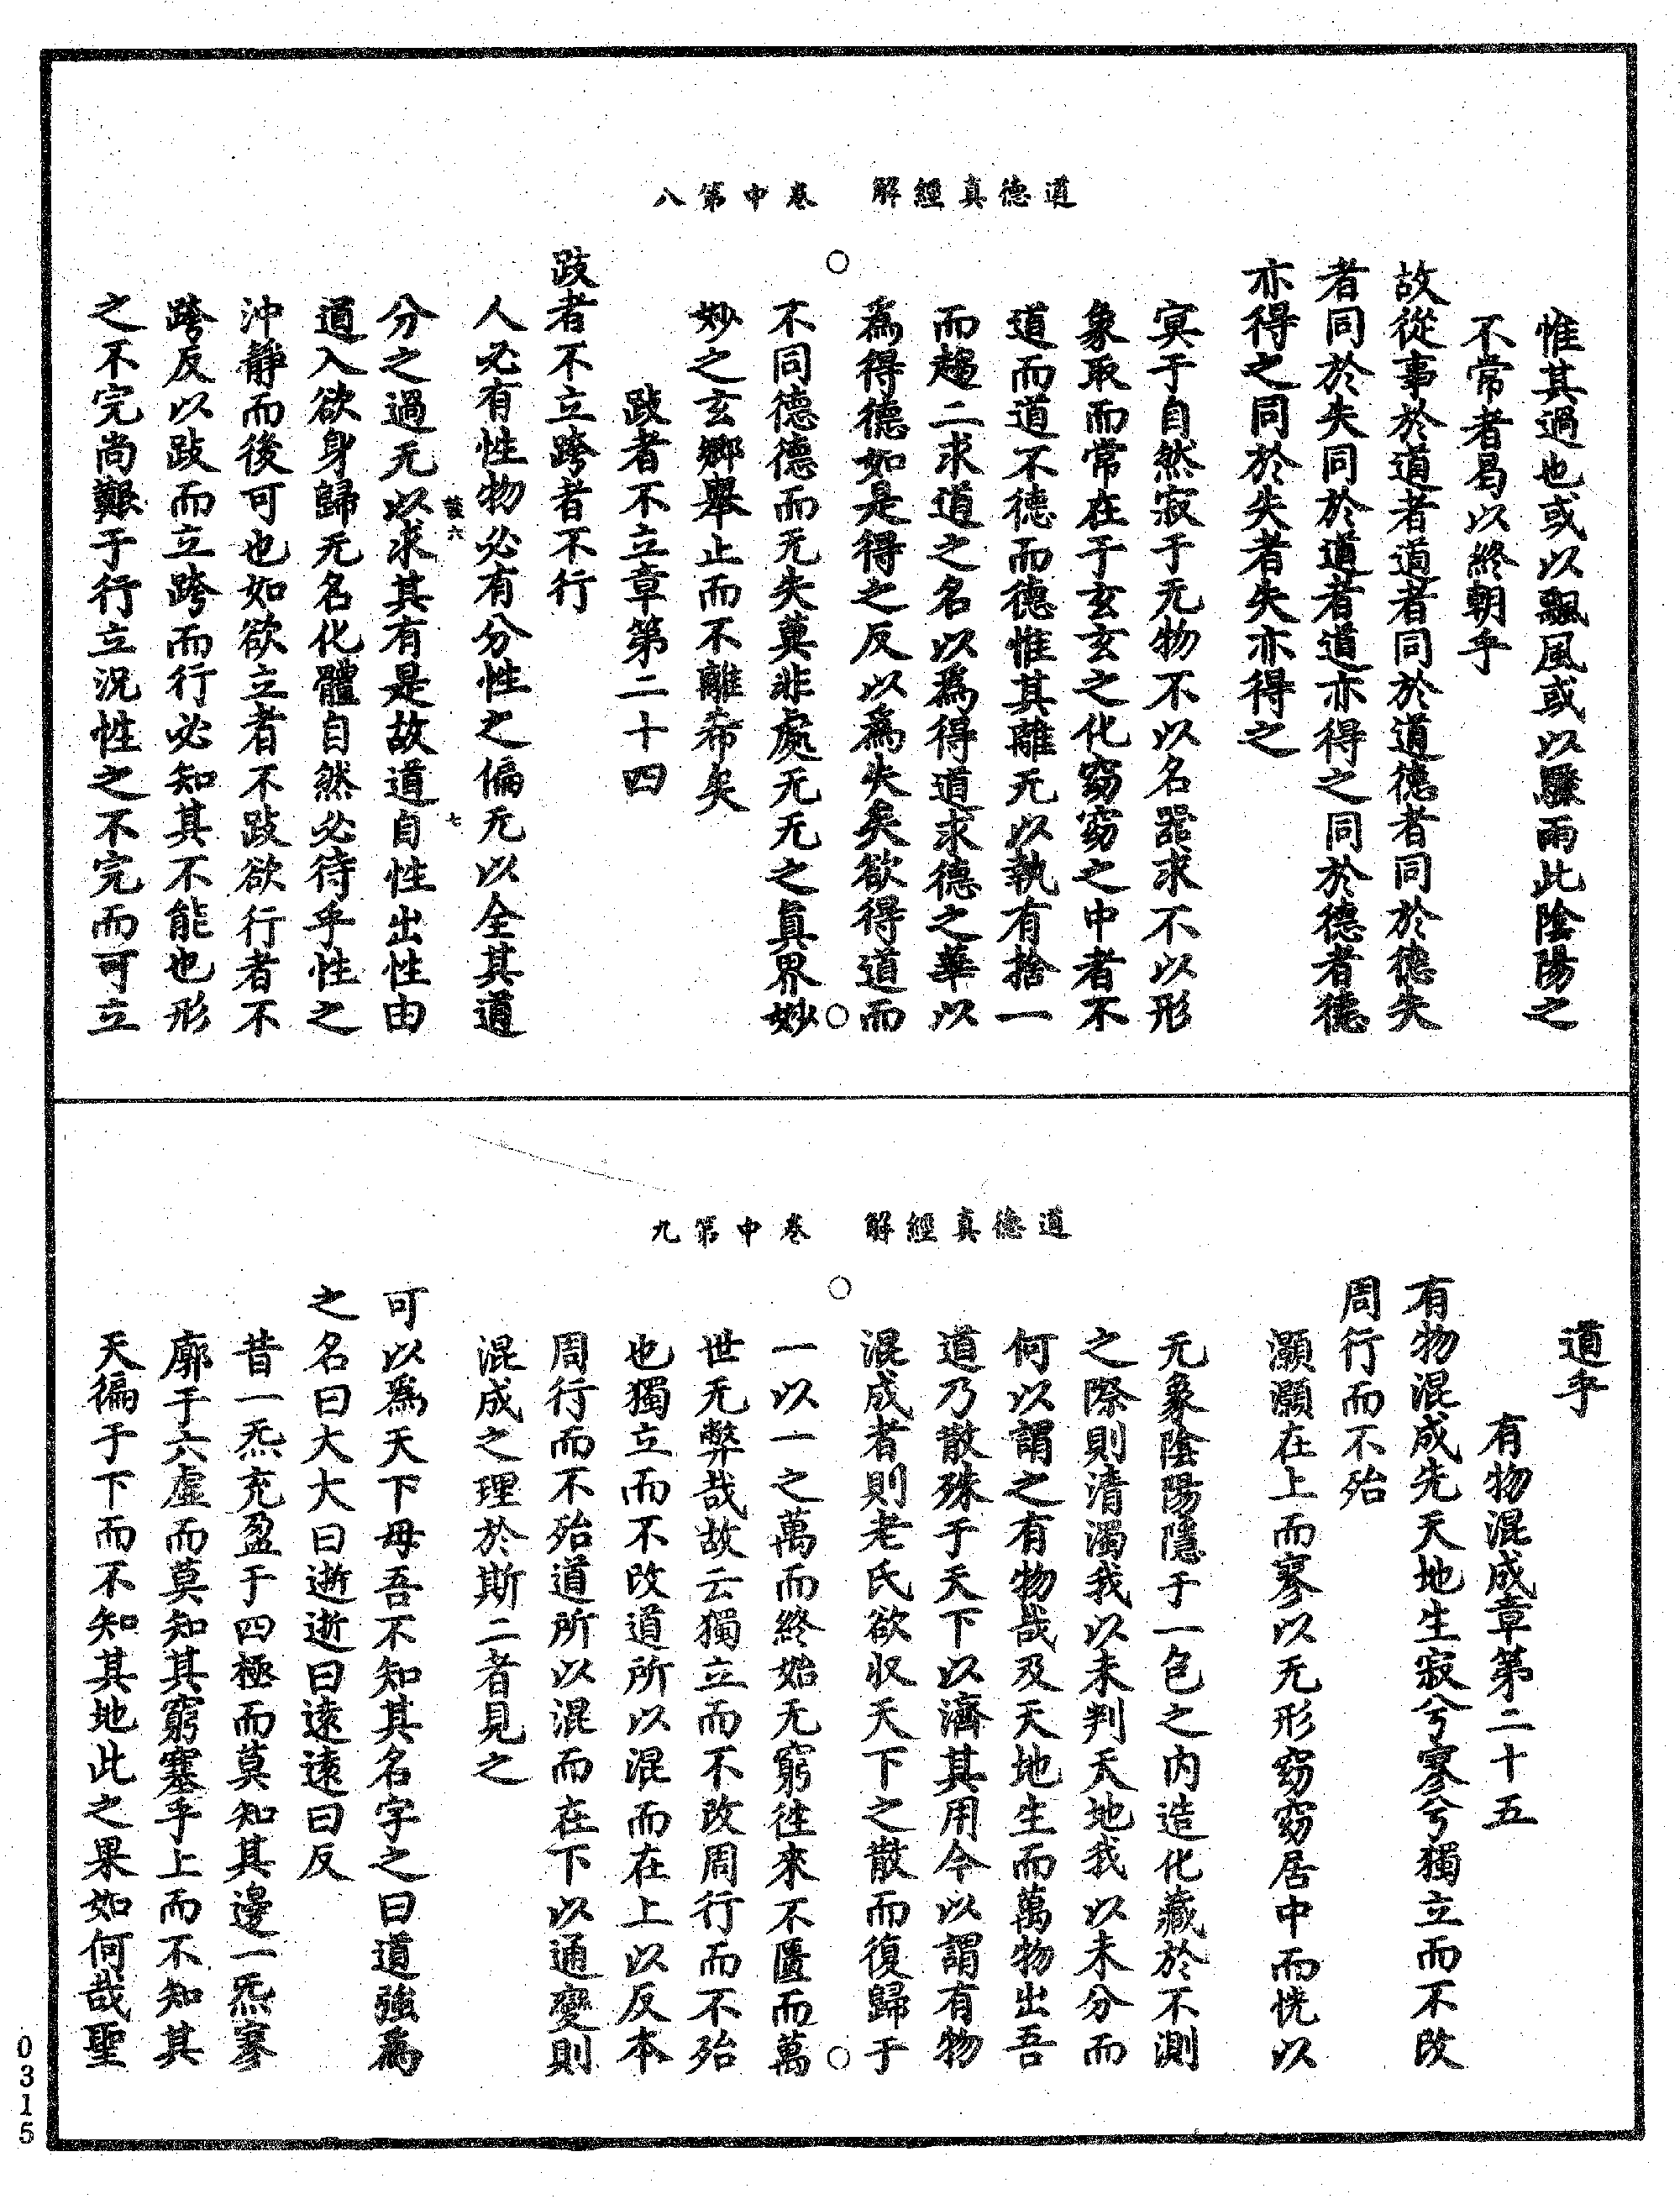 道德真經解　卷中第八
惟其過也或以飄風或以驟雨此陰陽之
不常者曷以終朝乎
故從事於道者道者同於道德者同於德失
者同於失同於道者道亦得之同於德者德
亦得之同於失者失亦得之
冥于自然寂于无物不以名器求不以形
象取而常在于玄玄之化窈窈之中者不
道而道不德而德惟其離无以執有捨一
而趨二求道之名以為得道求德之華以
為得德如是得之反以為失矣欲得道而
不同德德而无失莫非處无无之真界妙
妙之玄鄉舉止而不離希矣
跂者不立章第二十四
跂者不立跨者不行
人必有性物必有分性之偏无以全其道
分之過无以求其有是故道自性出性由
道入欲身歸无名化體自然必待乎性之
沖靜而後可也如欲立者不跂欲行者不
跨反以跂而立跨而行必知其不能也形
之不完尚艱于行立況性之不完而可立
六
七
道德真經解　卷中第九
道乎
有物混成章第二十五
有物混成先天地生寂兮寥兮獨立而不改
周行而不殆
灝灝在上而寥以无形窈窈居中而恍以
无象陰陽隱于一包之内造化藏於不測
之際則清濁我以未判天地我以未分而
何以謂之有物哉及天地生而萬物出吾
道乃散殊于天下以濟其用今以謂有物
混成者則老氏欲收天下之散而復歸于
一以一之萬而終始无窮往來不匱而萬
世无弊哉故云獨立而不改周行而不殆
也獨立而不改道所以混而在上以反本
周行而不殆道所以混而在下以通變則
混成之理於斯二者見之
可以為天下母吾不知其名字之曰道強為
之名曰大大曰逝逝曰遠遠曰反
昔一炁充盈于四極而莫知其邊一炁寥
廓于六虛而莫知其窮塞乎上而不知其
天徧于下而不知其地此之果如何哉聖
0315